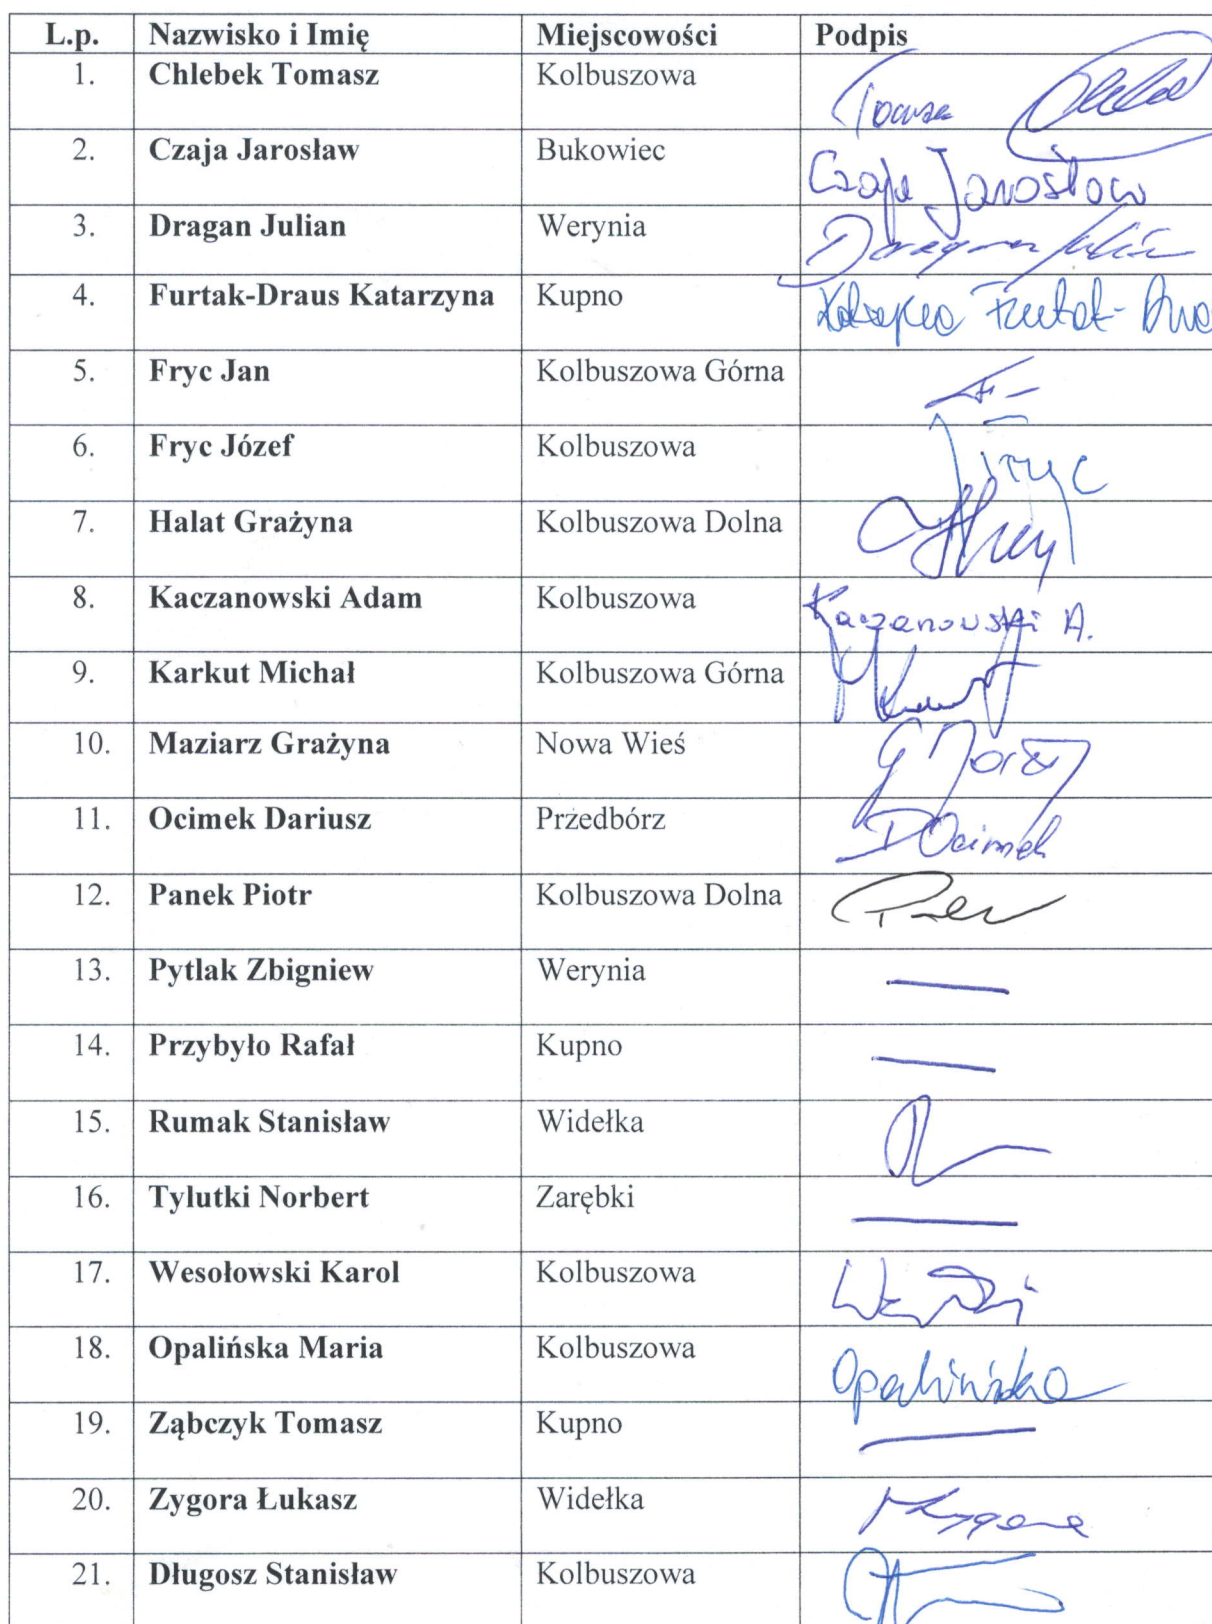 L.p. Nazwisko i Imię Miejscowości Podpis
1. Chlebek Tomasz Kolbuszowa Tomasz
2. Czaja Jarosław Bukowiec Czaja Jarosław
3. Dragan Julian Werynia Dragan Julian
4. Furtak-Draus Katarzyna Kupno Katarzyna Furtak-Dra
5. Fryc Jan Kolbuszowa Górna
6. Fryc Józef Kolbuszowa Fryc
7. Halat Grażyna Kolbuszowa Dolna
8. Kaczanowski Adam Kolbuszowa Kaczanowski A.
9. Karkut Michał Kolbuszowa Górna
10. Maziarz Grażyna Nowa Wieś
11. Ocimek Dariusz Przedbórz D Ocimek
12. Panek Piotr Kolbuszowa Dolna
13. Pytlak Zbigniew Werynia —
14. Przybyło Rafał Kupno —
15. Rumak Stanisław Widełka
16. Tylutki Norbert Zarębki —
17. Wesołowski Karol Kolbuszowa
18. Opalińska Maria Kolbuszowa Opalińska
19. Ząbczyk Tomasz Kupno —
20. Zygora Łukasz Widełka
21. Długosz Stanisław Kolbuszowa